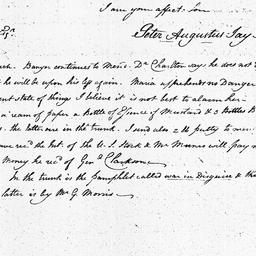 I am your affect. Son
Peter Augustus Jay
Banyer continues to mend. Dr. Charlton says he does not
he will be upon his legs again. Maria apprehends no Danger
ent state of things I believe it is not best to alarm her
a ream of paper a Bottle of Essence of Mustard & 3 Bottles B
the letter are in the trunk. I send also 2 lb putty to
recd. the Int. of the U.S. Stock & Mr. Munro will pay
Money he recd. of Genl. Clarkson
In the trunk is the pamphlet called war in Disguise & th
latter is by Mr G Morris